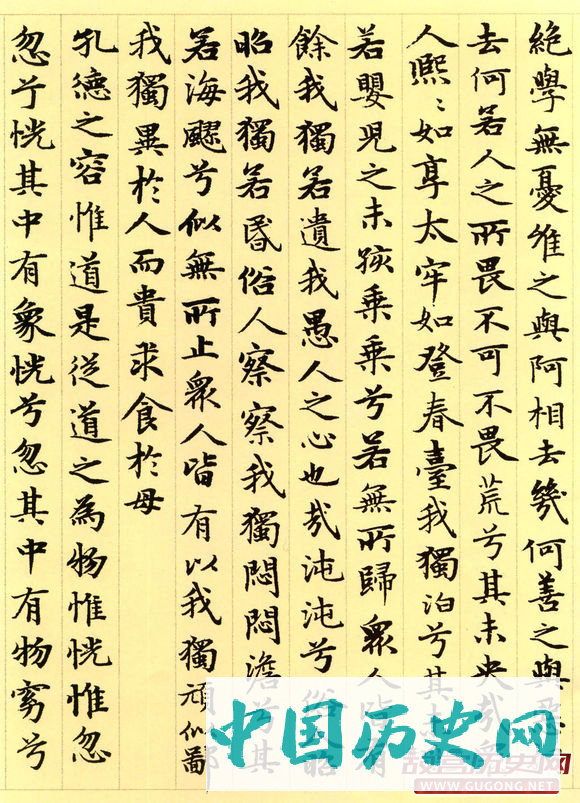 絕學無憂維之與阿相去幾何善之與
去何若人之所畏不可不畏荒兮其未央哉
人熙〻如享太牢如登春臺我獨泊兮其
若嬰兒之未孩乘乘兮若無所歸眾人
餘我獨若遺我愚人之心也哉沌沌兮
昭我獨若昏俗人察察我獨悶悶澹兮其
若海飂兮似無所止眾人皆有以我獨頑似啚
我獨異於人而貴求食於母
孔德之容惟道是從道之為物惟恍惟忽
忽兮恍其中有象恍兮忽其中有物窈兮
中国历史网
故宫历史网
WWW.GUGONG.NET